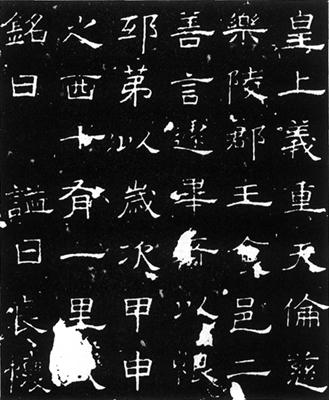 皇上義重天倫慈
樂陵郡王食邑二
善言遽畢以恨
邸第以歲次甲申
之西十有一里
銘曰 謚曰懷